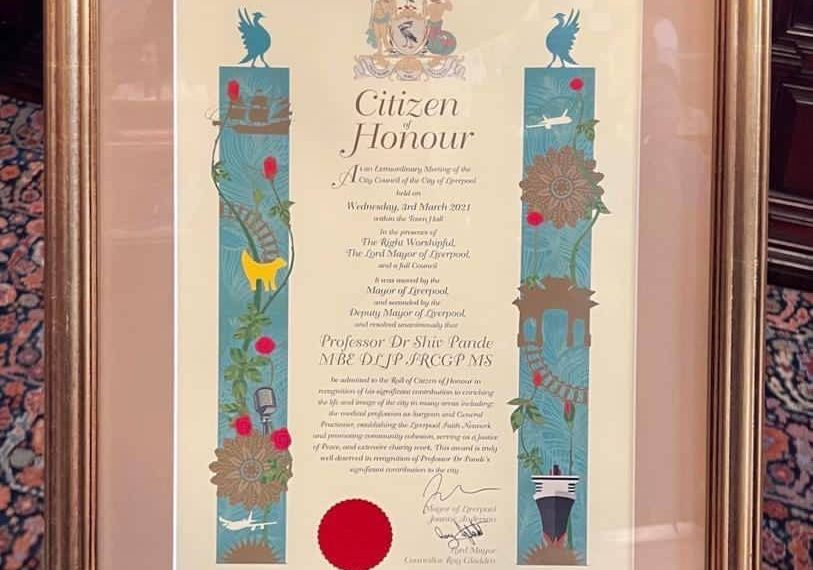 Citizen
of
Honour
At an Extraordinary Meeting of the
City Council of the City of Liverpool
held on
Wednesday, 3rd March 2021
within the Town Hall
In the presence of
The Right Worshipful,
The Lord Mayor of Liverpool,
and a full Council
It was moved by the
Mayor of Liverpool,
and seconded by the
Deputy Mayor of Liverpool,
and resolved unanimously that
Professor Dr Shiv Pande
MBE DL JP FRCGP MS
be admitted to the Roll of Citizen of Honour in
recognition of his significant contribution to enriching
the life and image of the city in many areas including:
the medical profession as Surgeon and General
Practioner, establishing the Liverpool Faith Network
and promoting community cohesion, serving as a Justice
of Peace, and extensive charity work. This award is truly
well deserved in recognition of Professor Dr Pande's
significant contribution to the city
Mayor of Liverpool
Joanne Anderson
Lord Mayor
Councillor Roy Gladden